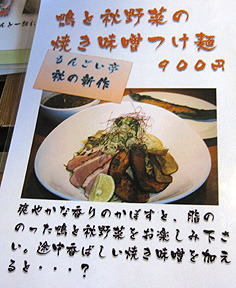 鴨と秋野菜の
焼き味噌つけ麺
900円
もんごい亭
秋の新作
爽やかな香りのかぼすと、脂の
のった鴨と秋野菜をお楽しみ下さ
い。途中香ばしい焼き味噌を加え
ると・・・?